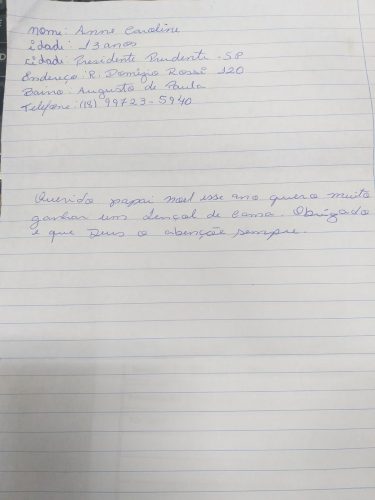 Nome: Anne Caroline
idade: 13 anos
cidade: Presidente Prudente - SP
Endereço: R. Domigio Rossi 120
Bairro: Augusto de Paula
Telefone: (18) 99723-5940
Querido papai noel esse ano quero muito
ganhar um lençol de cama. Obrigada
e que Deus o abençõe sempre.